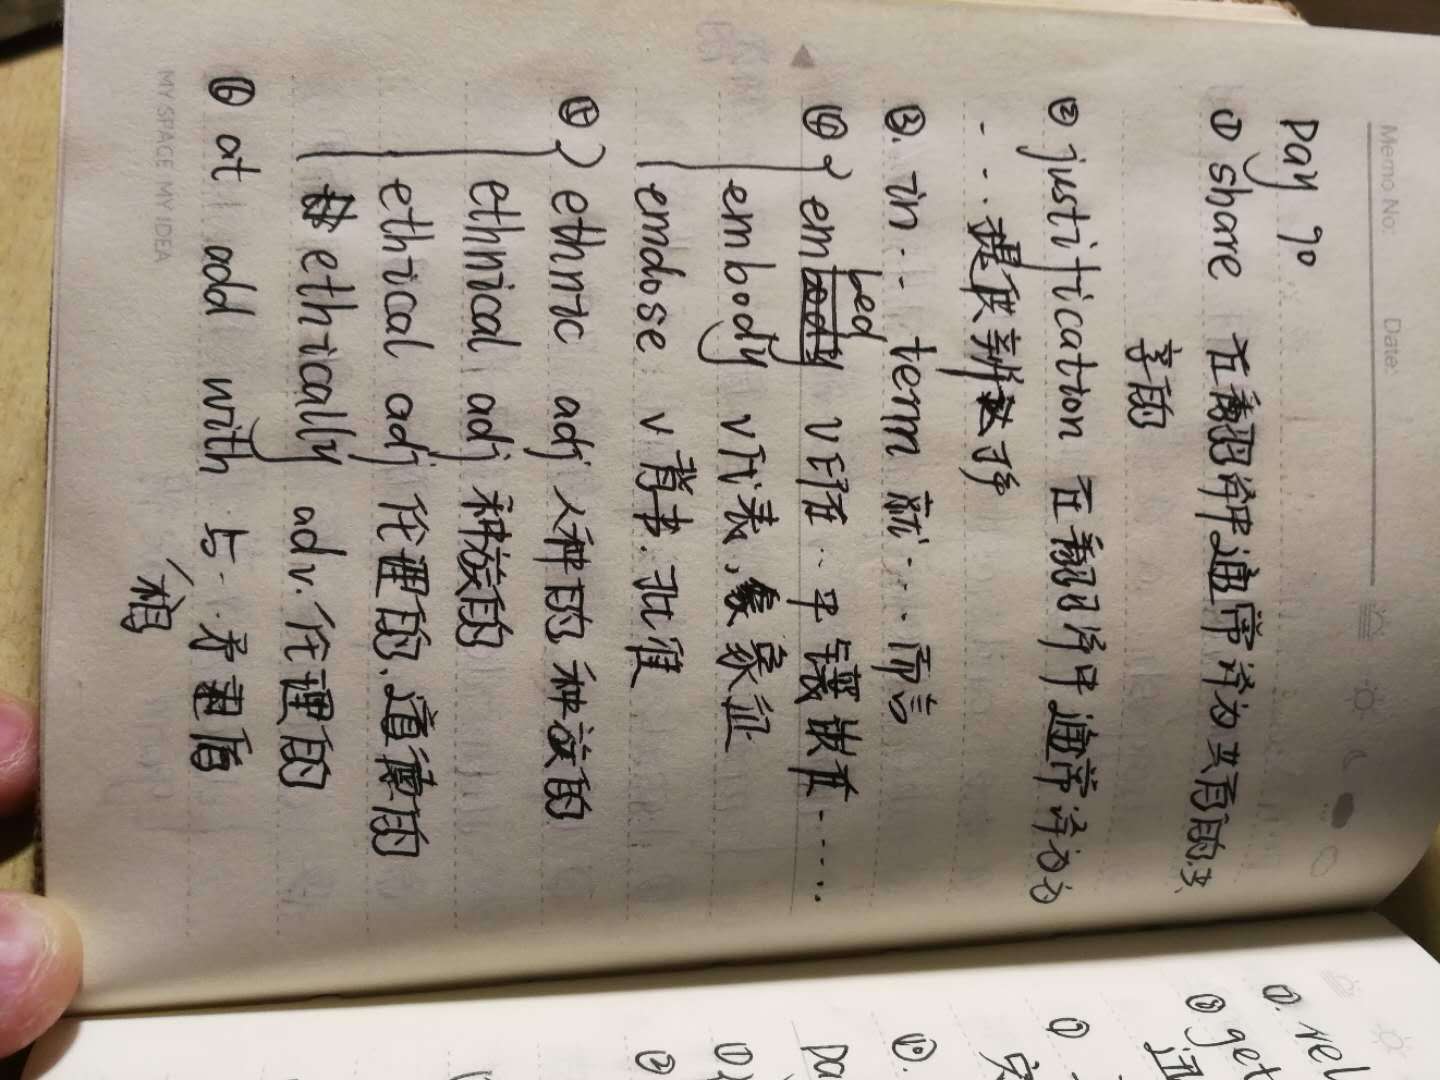 Memo No: Date:
Day 90
① share 在翻译中通常译为共有的,共
享的
② justification 在翻译中通常译为为
...提供辩护
③. in... term 就...而言
④ embed v 印在..中 镶嵌在......
embody v代表,象征
emdose v 背书.批准
⑤ ethnic adj 人种的,种族的
ethnical adj 种族的
ethical adj 伦理的.道德的
ethically adv.伦理的
⑥ at odd with 与..矛盾
相
MY SPACE MY IDEA
①. rel
② get
①
⑩.
Da
①
②